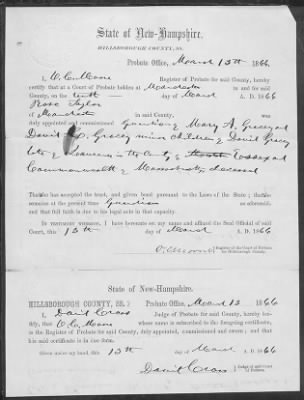 State of New-Hampshire.
HILLSBOROUGH COUNTY, SS.
Probate Office, March 13th 1866
I, Register of Probate for said County, hereby
certify that at a Court of Probate holden at Manchester in and for said
County, on the tenth day of March A. D. 1866
Rose Taylor
of Manchester
duly appointed and commissioned Guardian of Mary A. Gracey and
David Gracey minor children of David Gracey
late of Lawrence in the County of Essex and
Commonwealth of Massachusetts deceased
That she has accepted the trust, and given bond pursuant to the Laws of the State; that she
remains at the present time Guardian as aforesaid,
and that full faith is due to her legal acts in that capacity.
In testimony whereof, I have hereunto set my name and affixed the Seal Official of said
Court, this 13th day of March A. D. 1866
Register of the Court of Probate
for Hillsborough County.
State of New-Hampshire.
HILLSBOROUGH COUNTY, SS. Probate Office, March 13 1866
I, David Cross Judge of Probate for said County, hereby
certify, that whose name is subscribed to the foregoing certificate,
is the Register of Probate for said County, duly appointed, commissioned and sworn; and that
his said certificate is in due form.
Given under my hand, this 13th day of March A. D. 1866
David Cross
Judge of said Court.